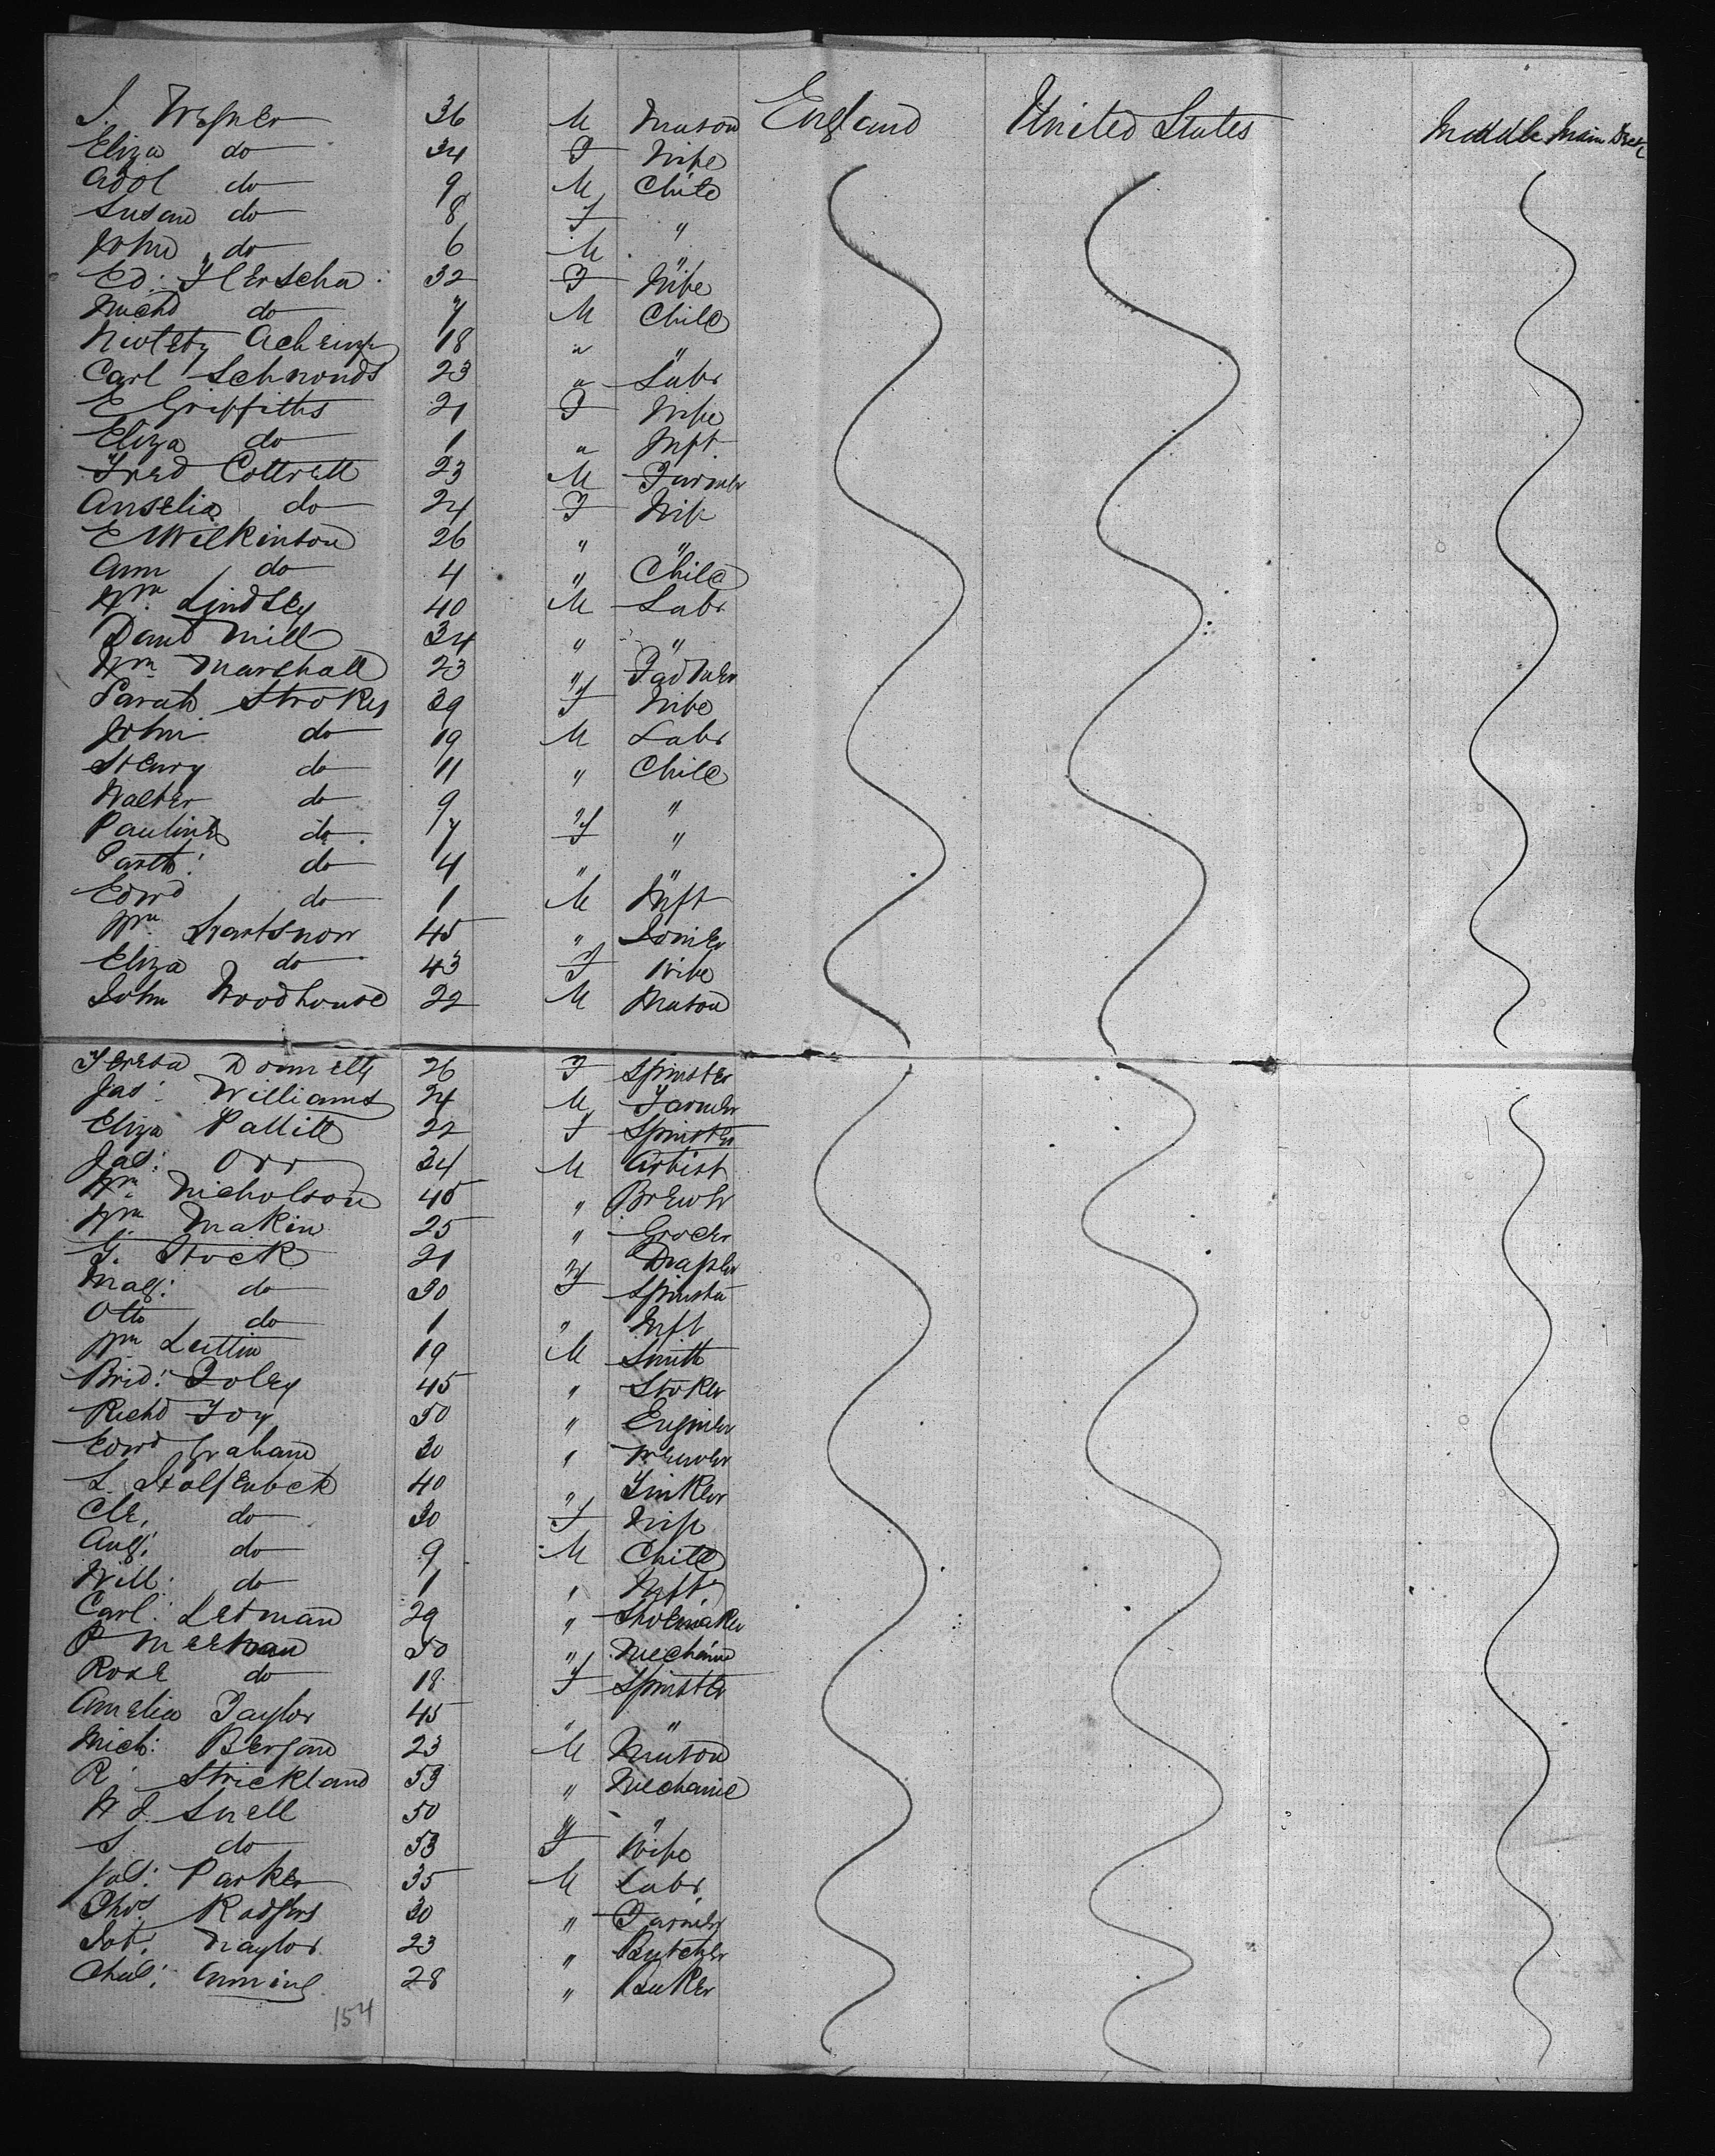 J. Wegner 36 M Mason England United States Middle Main Deck
Eliza do 34 F Wife
Adol do 9 M Child
Susan do 8 F "
John do 6 M "
Ed: 32 F Wife
Richd do 7 M Child
18 " "
Carl Schronds 23 " Labr
E Griffiths 21 F Wife
Eliza do 1 " Inft
Fred Cottrell 23 M Farmer
Anselia do 24 F Wife
E Wilkinson 26 " "
Ann do 4 " Child
Wm Lindsley 40 M Labr
David Mill 34 " "
Wm Marshall 23 " Farmer
Sarah Strokes 39 F Wife
John do 19 M Labr
Henry do 11 " Child
Walter do 9 " "
Pauline do 7 F "
do 4 " "
Edwd do 1 M Inft
Wm Hartsnow 45 " Joiner
Eliza do 43 F Wife
John Woodhouse 22 M Mason
Teresa Donnelly 26 F Spinster
Jas: Williams 24 M Farmer
Eliza Pallitt 22 F Spinster
Jas: Orr 34 M Artist
Wm Nicholson 45 " Brewer
Wm Makin 25 " Grocer
G. Stock 21 " Draper
Mag: do 30 F Spinster
Otto do 1 " Inft
Wm Lettin 19 M Smith
Brid: Foley 45 " Stoker
Richd Foy 50 " Engineer
Edwd Graham 30 "
L. Stolfenbek 40 " Tinker
Cle, do 30 F Wife
Aug: do 9 M Child
Will: do 1 " Inft
Carl: Ledman 29 " Shoemaker
P Meehan 50 " Mechanic
Rose do 18 F Spinster
Amelia Taylor 45 " "
Mich: Bergan 23 M Mason
R: Strickland 53 " Mechanic
W J. Snell 50 " "
S do 53 F Wife
Jas: Parker 35 M Labr
Thos Rodgers 30 " Farmer
Jos: Naylor 23 " Butcher
Chas: Anning 28 " Baker
154